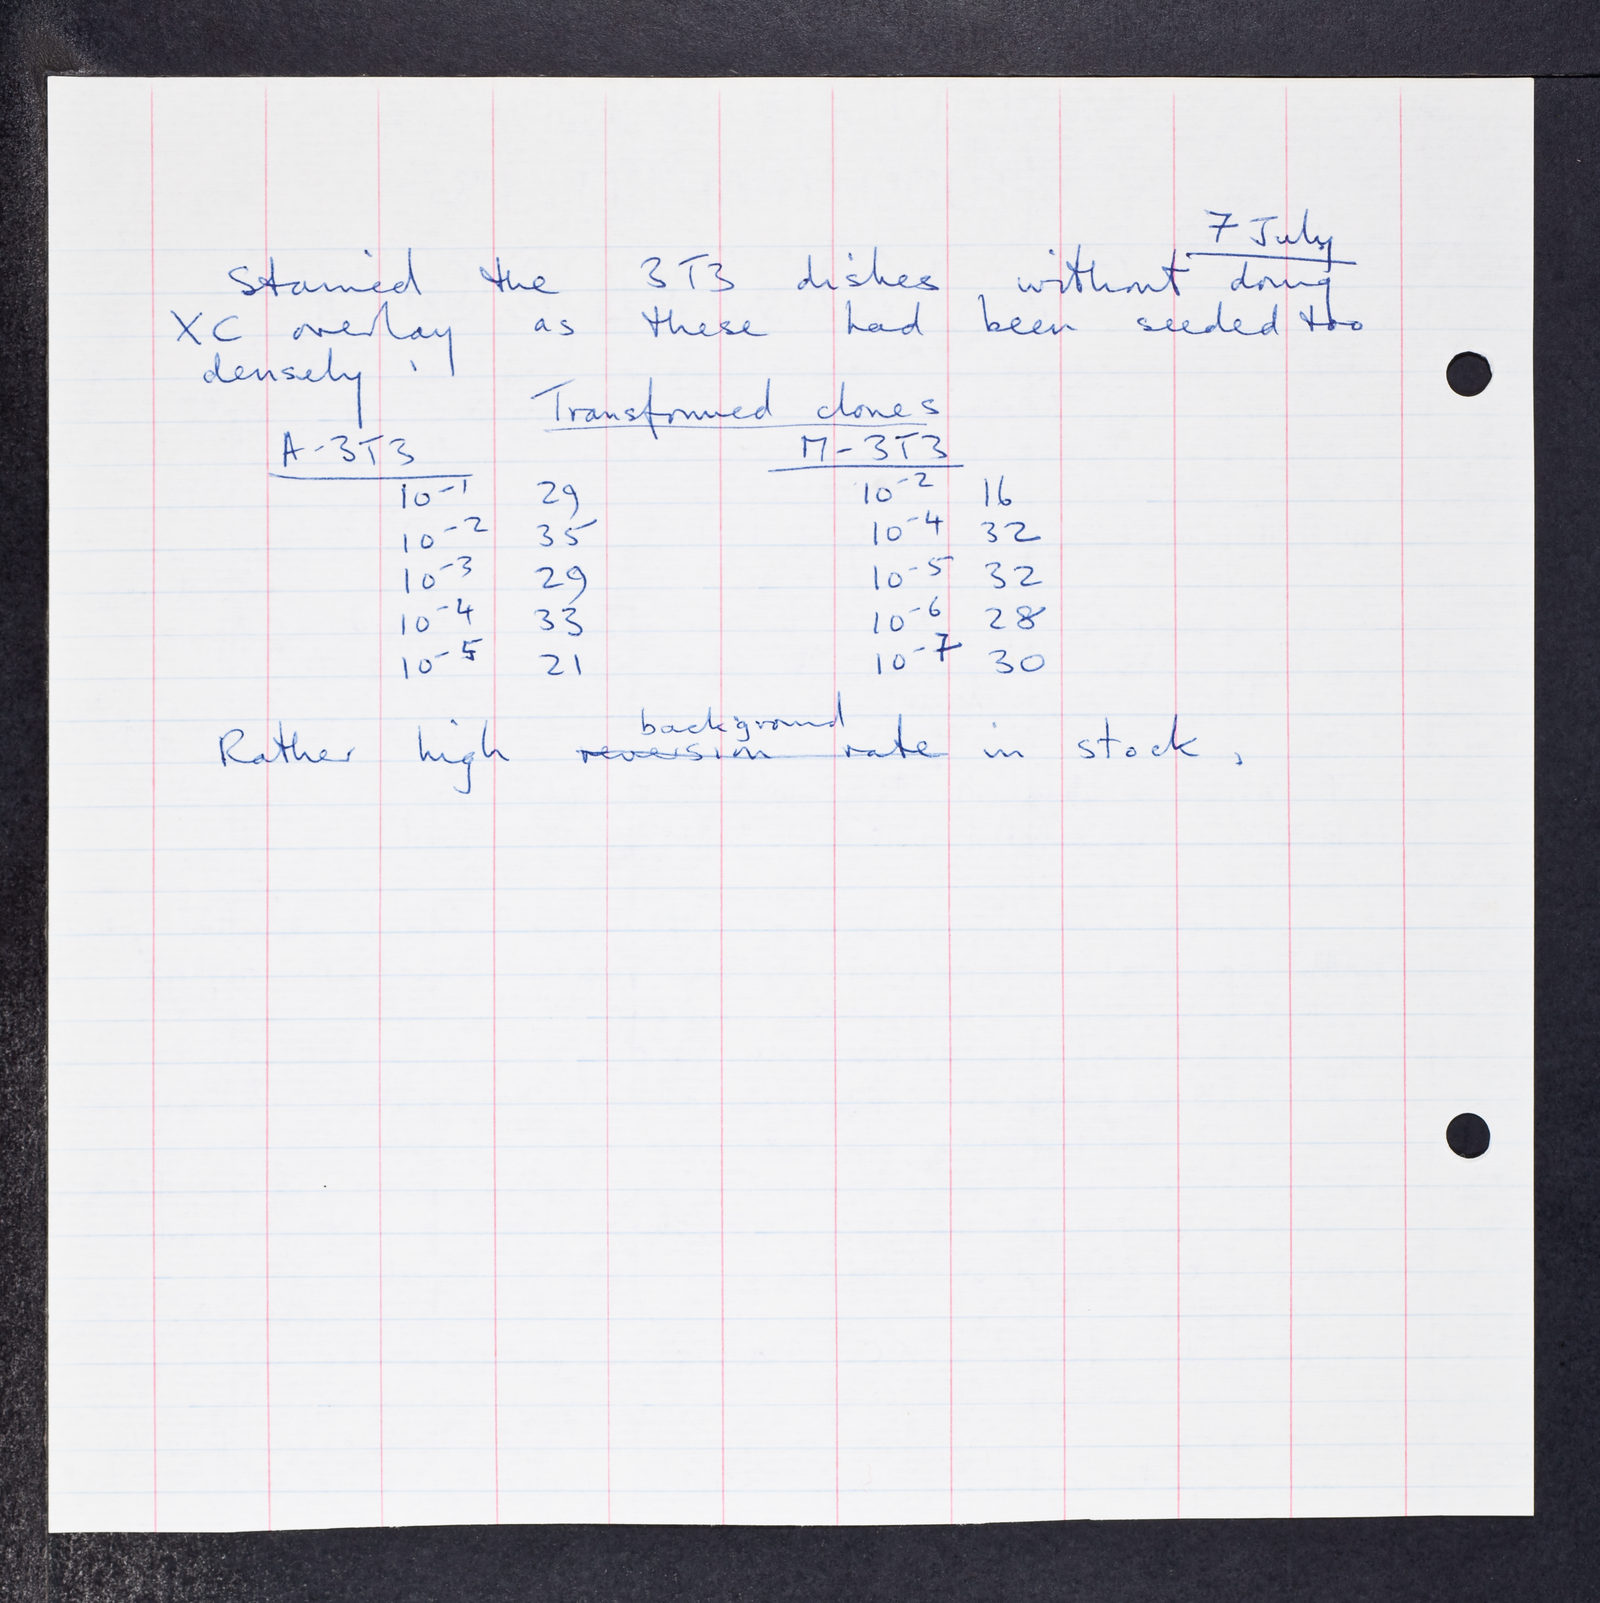 7 July
Stained the 3T3 dishes without doing
XC overlay as these had been seeded too
densely.
Transformed clones
A-3T3 M-3T3
10⁻¹ 29 10⁻² 16
10⁻² 35 10⁻⁴ 32
10⁻³ 29 10⁻⁵ 32
10⁻⁴ 33 10⁻⁶ 28
10⁻⁵ 21 10⁻⁷ 30
background
Rather high reversion rate in stock.